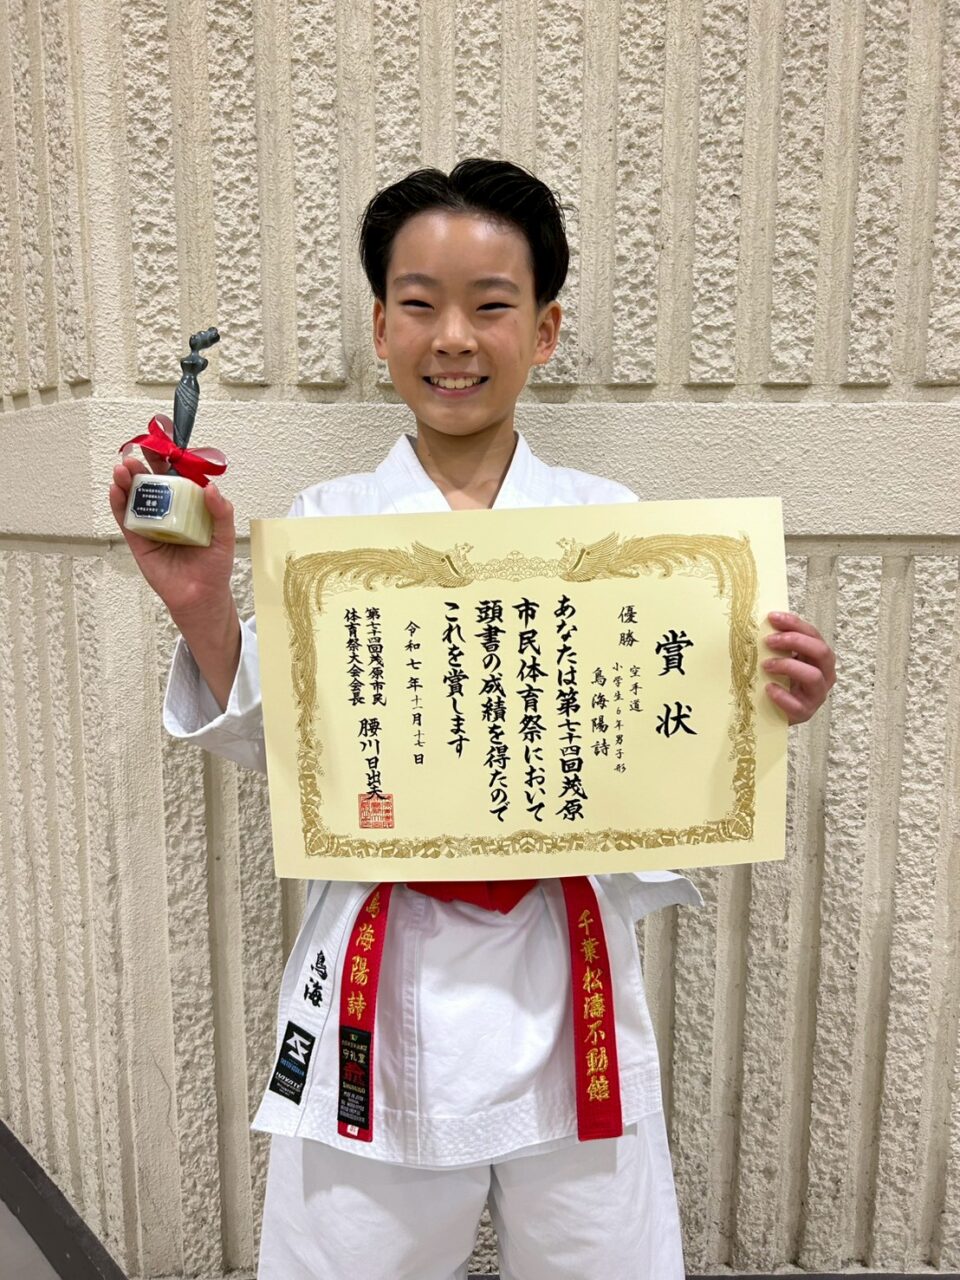 賞状
優勝
空手道
小学生6年男子形
鳥海陽詩
あなたは第七十四回茂原
市民体育祭において
頭書の成績を得たので
これを賞します
令和七年十一月十七日
第七十四回茂原市民
体育祭大会会長
腰川日出夫
優勝
鳥海陽詩
鳥海
千葉松濤不動館
守礼堂
HAYATE